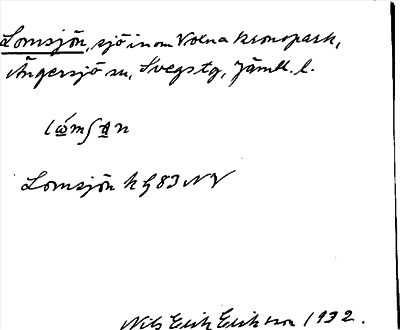 Lomsjön, sjö inom Volna kronopark,
Ängersjö sn, Svegs tg, Jämtl. l.
Lomsjön k g 83 NV
Nils Erik Eriksson 1932.